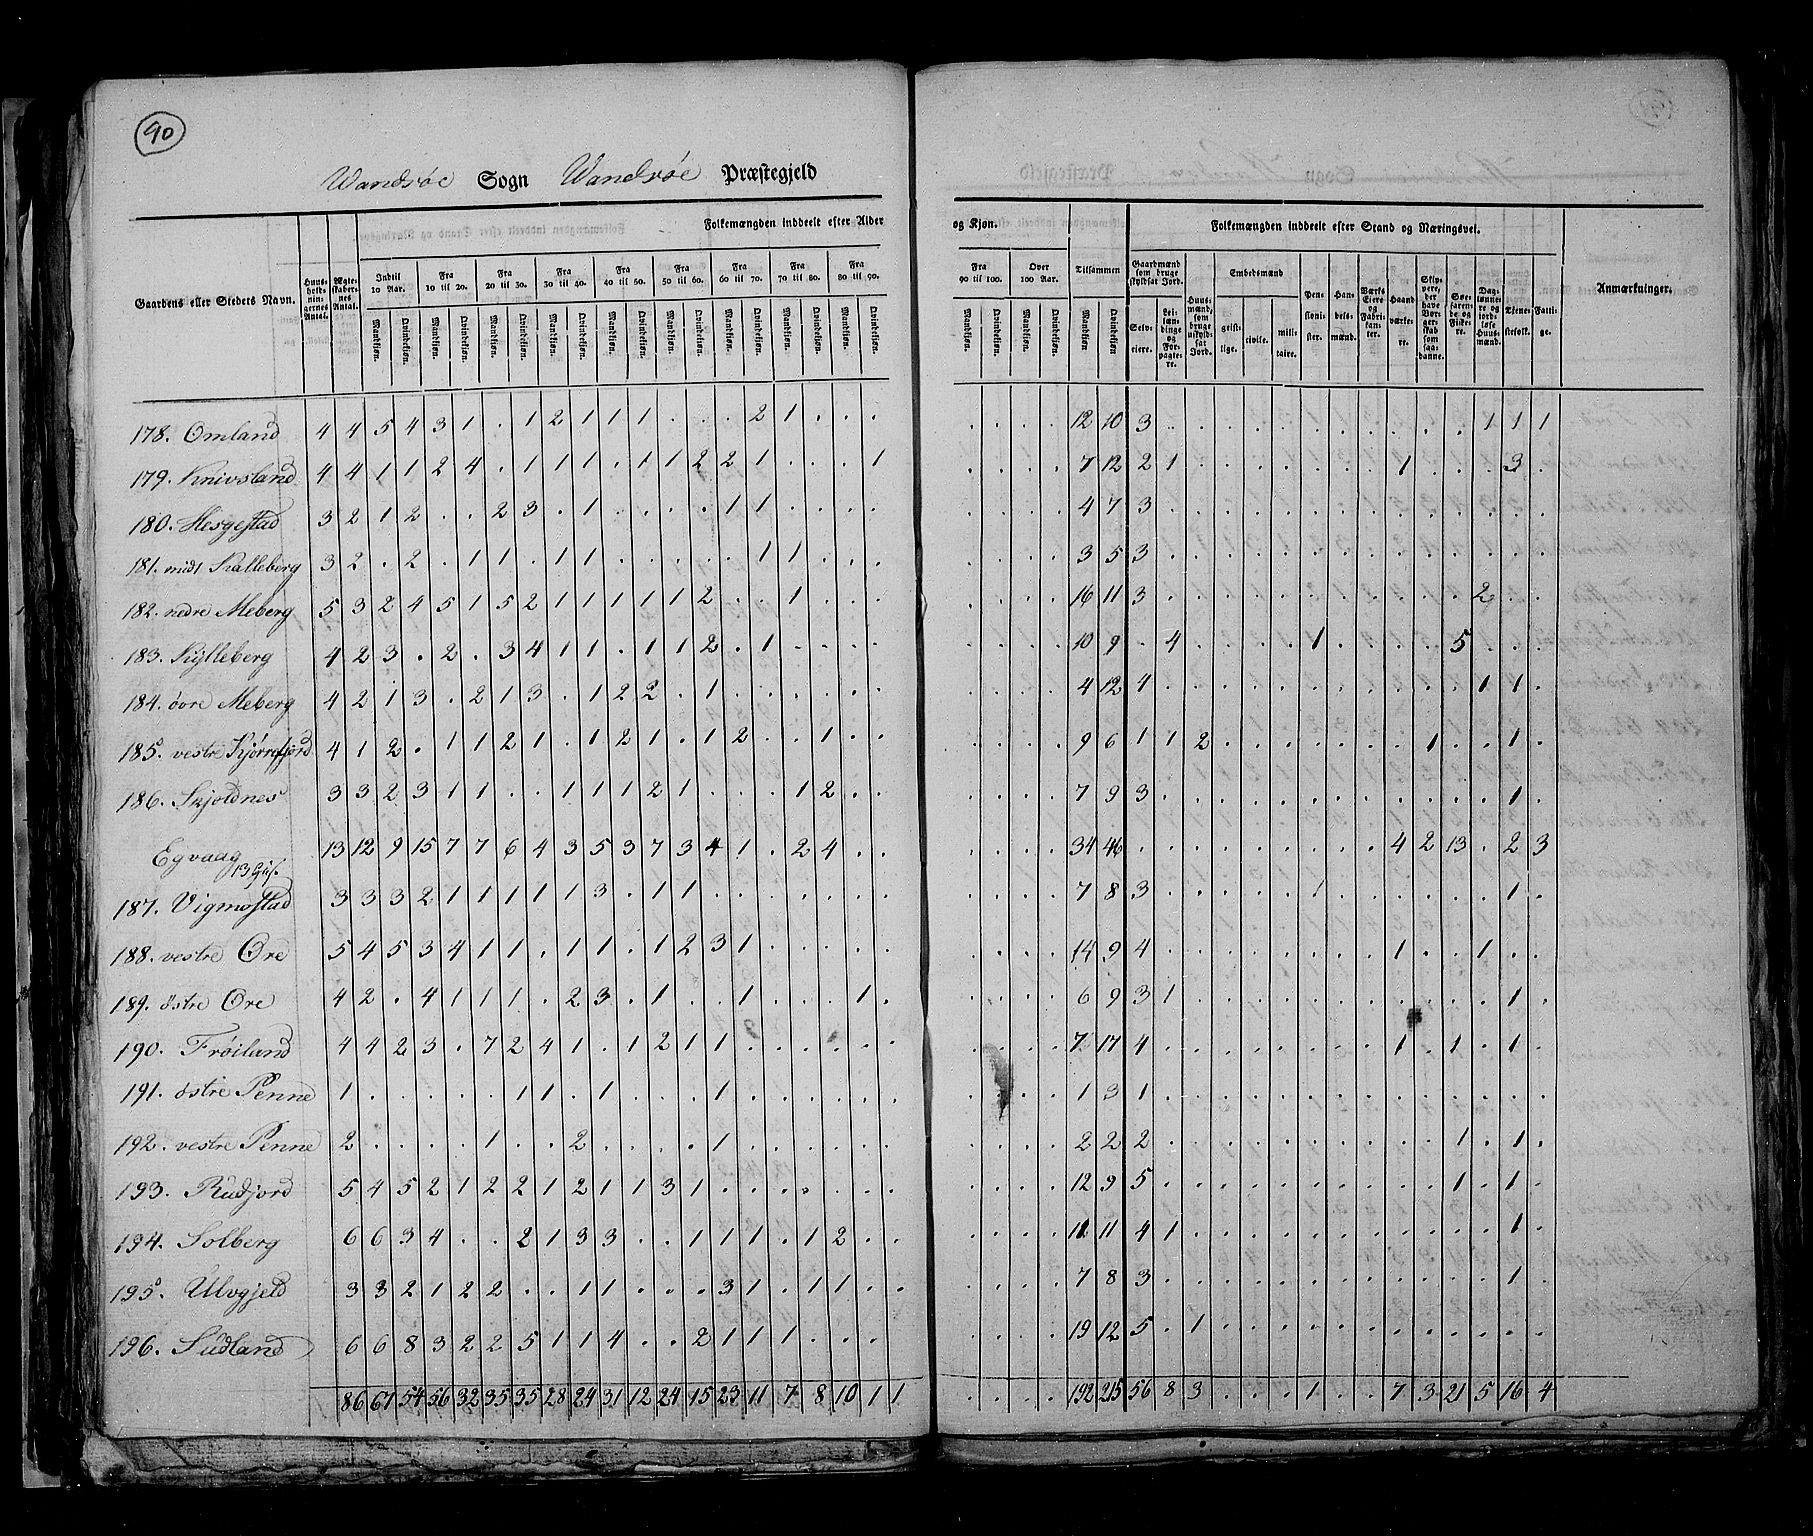 90
Wandsøe Sogn Wandsøe Præstegjeld
Gaardens eller Stedets Navn.
Huusholdningernes Antal.
Ægteskabernes Antal.
Folkemængden inddeelt efter Alder og Kjøn.
Indtil 10 Aar.
Fra 10 til 20.
Fra 20 til 30.
Fra 30 til 40.
Fra 40 til 50.
Fra 50 til 60.
Fra 60 til 70.
Fra 70 til 80.
Fra 80 til 90.
Fra 90 til 100.
Over 100 Aar.
Tilsammen
Mandkjøn. Qvindekjøn.
Folkemængden inddeelt efter Stand og Næringsvei.
Gaardmænd som bruge skyldsat Jord.
Selveiere.
Leilændinge og Forpagtere.
Huusmænd, som bruge uskyldsat Jord.
Embedsmænd
geistlige. civile. militaire.
Pensionister.
Handelsmænd.
Værks Eiere og Fabrikanter.
Haandværkere.
Skippere, der have Borgerskab som saadanne.
Søefarende og Fiskere.
Daglønnere og jordløse Huusmænd.
Tjenestefolk.
Fattige.
Anmærkninger.
178. Omland 4 4 5 4 3 1 . 1 2 1 1 1 1 . . . 2 1 . . . . . . . 12 10 3 . . . . . . . . . . . 1 1 1
179. Knivsland 4 4 1 1 2 4 . 1 1 1 . 1 1 2 2 1 . . . 1 . . . . 7 12 2 1 . . . . . . . 1 . . . 3 .
180. Hesgestad 3 2 1 2 . . 2 3 . 1 . . . . 1 1 . . . . . . . . 4 7 3 . . . . . . . . . . . . . .
181. midt Kalleberg 3 2 . 2 . 1 1 . 1 1 . . . . . 1 1 . . . . . . . 3 5 3 . . . . . . . . . . . . . .
182. nedre Meberg 5 3 2 4 5 1 5 2 1 1 1 1 1 2 . . 1 . . . . . . . 16 11 3 . . . . . . . . . . . 2 . .
183. Kylleberg 4 2 3 . 2 . 3 4 1 1 . 1 1 2 . 1 . . . . . . . . 10 9 . 4 . . . . 1 . . . . 5 . . .
184. øvre Meberg 4 2 1 3 . 2 1 3 . 1 2 2 . 1 . . . . . . . . . . 4 12 4 . . . . . . . . . . . 1 1 .
185. vestre Kjørrefjord 4 1 2 . 1 1 2 1 . 1 2 1 . 1 2 . . 1 . . . . . . 9 6 1 1 2 . . . . . . . 1 . . 1 .
186. Skjoldnes 3 3 2 3 1 1 . . 1 1 1 2 1 . . . 1 2 . . . . . . 7 9 3 . . . . . . . . . . . . 1 .
Egvaag 13 12 9 15 7 7 6 4 3 5 3 7 3 4 1 . 2 4 . . . . . . 34 46 . . . . . . . . . 4 2 13 . 2 3
187. Vigmostad 3 3 3 2 1 1 1 1 1 3 . 1 1 . . . . . . . . . . . 7 8 3 . . . . . 1 . . . . . . 1 .
188. vestre Ore 5 4 5 3 4 1 1 . 1 1 . 1 2 3 1 . . . . . . . . . 14 9 4 . . . . . . . . 1 . . 1 . .
189. østre Ore 4 2 . 4 1 1 1 . 2 3 . 1 . . 1 . . . 1 . . . . . 6 9 3 1 . . . . . . . . . . . 1 .
190. Frøiland 4 4 2 3 . 7 2 4 1 . 1 2 1 1 . . . . . . . . . . 7 17 4 . . . . . . . . 1 . 1 . 1 .
191. østre Penne 1 . . . . . 1 1 . 1 . . . 1 . . . . . . . . . . 1 3 1 . . . . . . . . . . . . . .
192. vestre Penne 2 . . . . 1 . . 2 . . . . 1 . . . . . . . . . . 2 2 2 . . . . . . . . . . 1 . 1 .
193. Rudjord 5 4 5 2 1 2 2 1 2 1 1 3 1 . . . . . . . . . . . 12 9 5 . . . . . . . . . . 1 . 1 .
194. Solberg 6 6 3 4 . . 2 1 3 3 . . 1 1 1 . 1 2 . . . . . . 11 11 4 1 . . . . . . . . . . . 1 .
195. Ulvgjeld 3 3 2 1 2 2 . . 1 1 . . . 3 1 . 1 1 . . . . . . 7 8 3 . . . . . . . . . . . . 1 .
196. Sudland 6 6 8 3 2 2 5 1 1 4 . . 2 1 1 1 . . . . . . . 19 12 5 . 1 . . . . . . . . . . . .
86 61 54 56 32 35 35 28 24 31 12 24 15 23 11 7 8 10 1 1 . . . . 192 215 56 8 3 . . . 1 . . 7 3 21 5 16 4